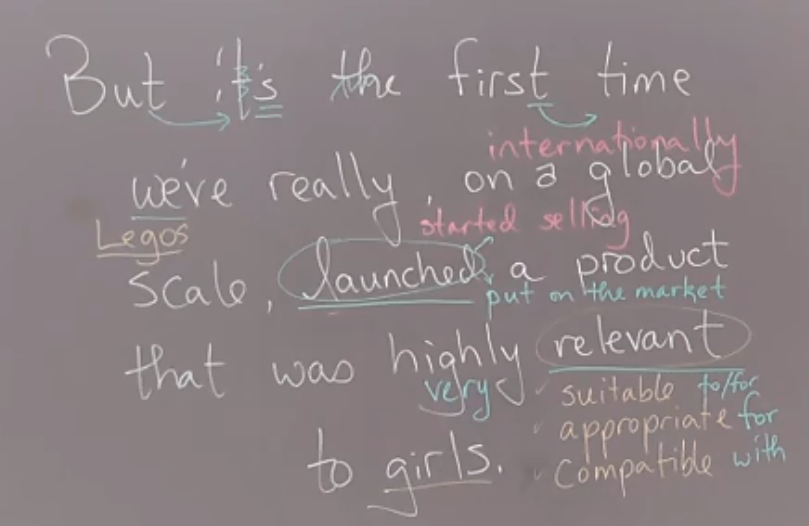 But it's the first time
internationally
we're really, on a global
Legos
started selling
scale, launched a product
put on the market
that was highly relevant
very
suitable to/for
appropriate for
compatible with
to girls.